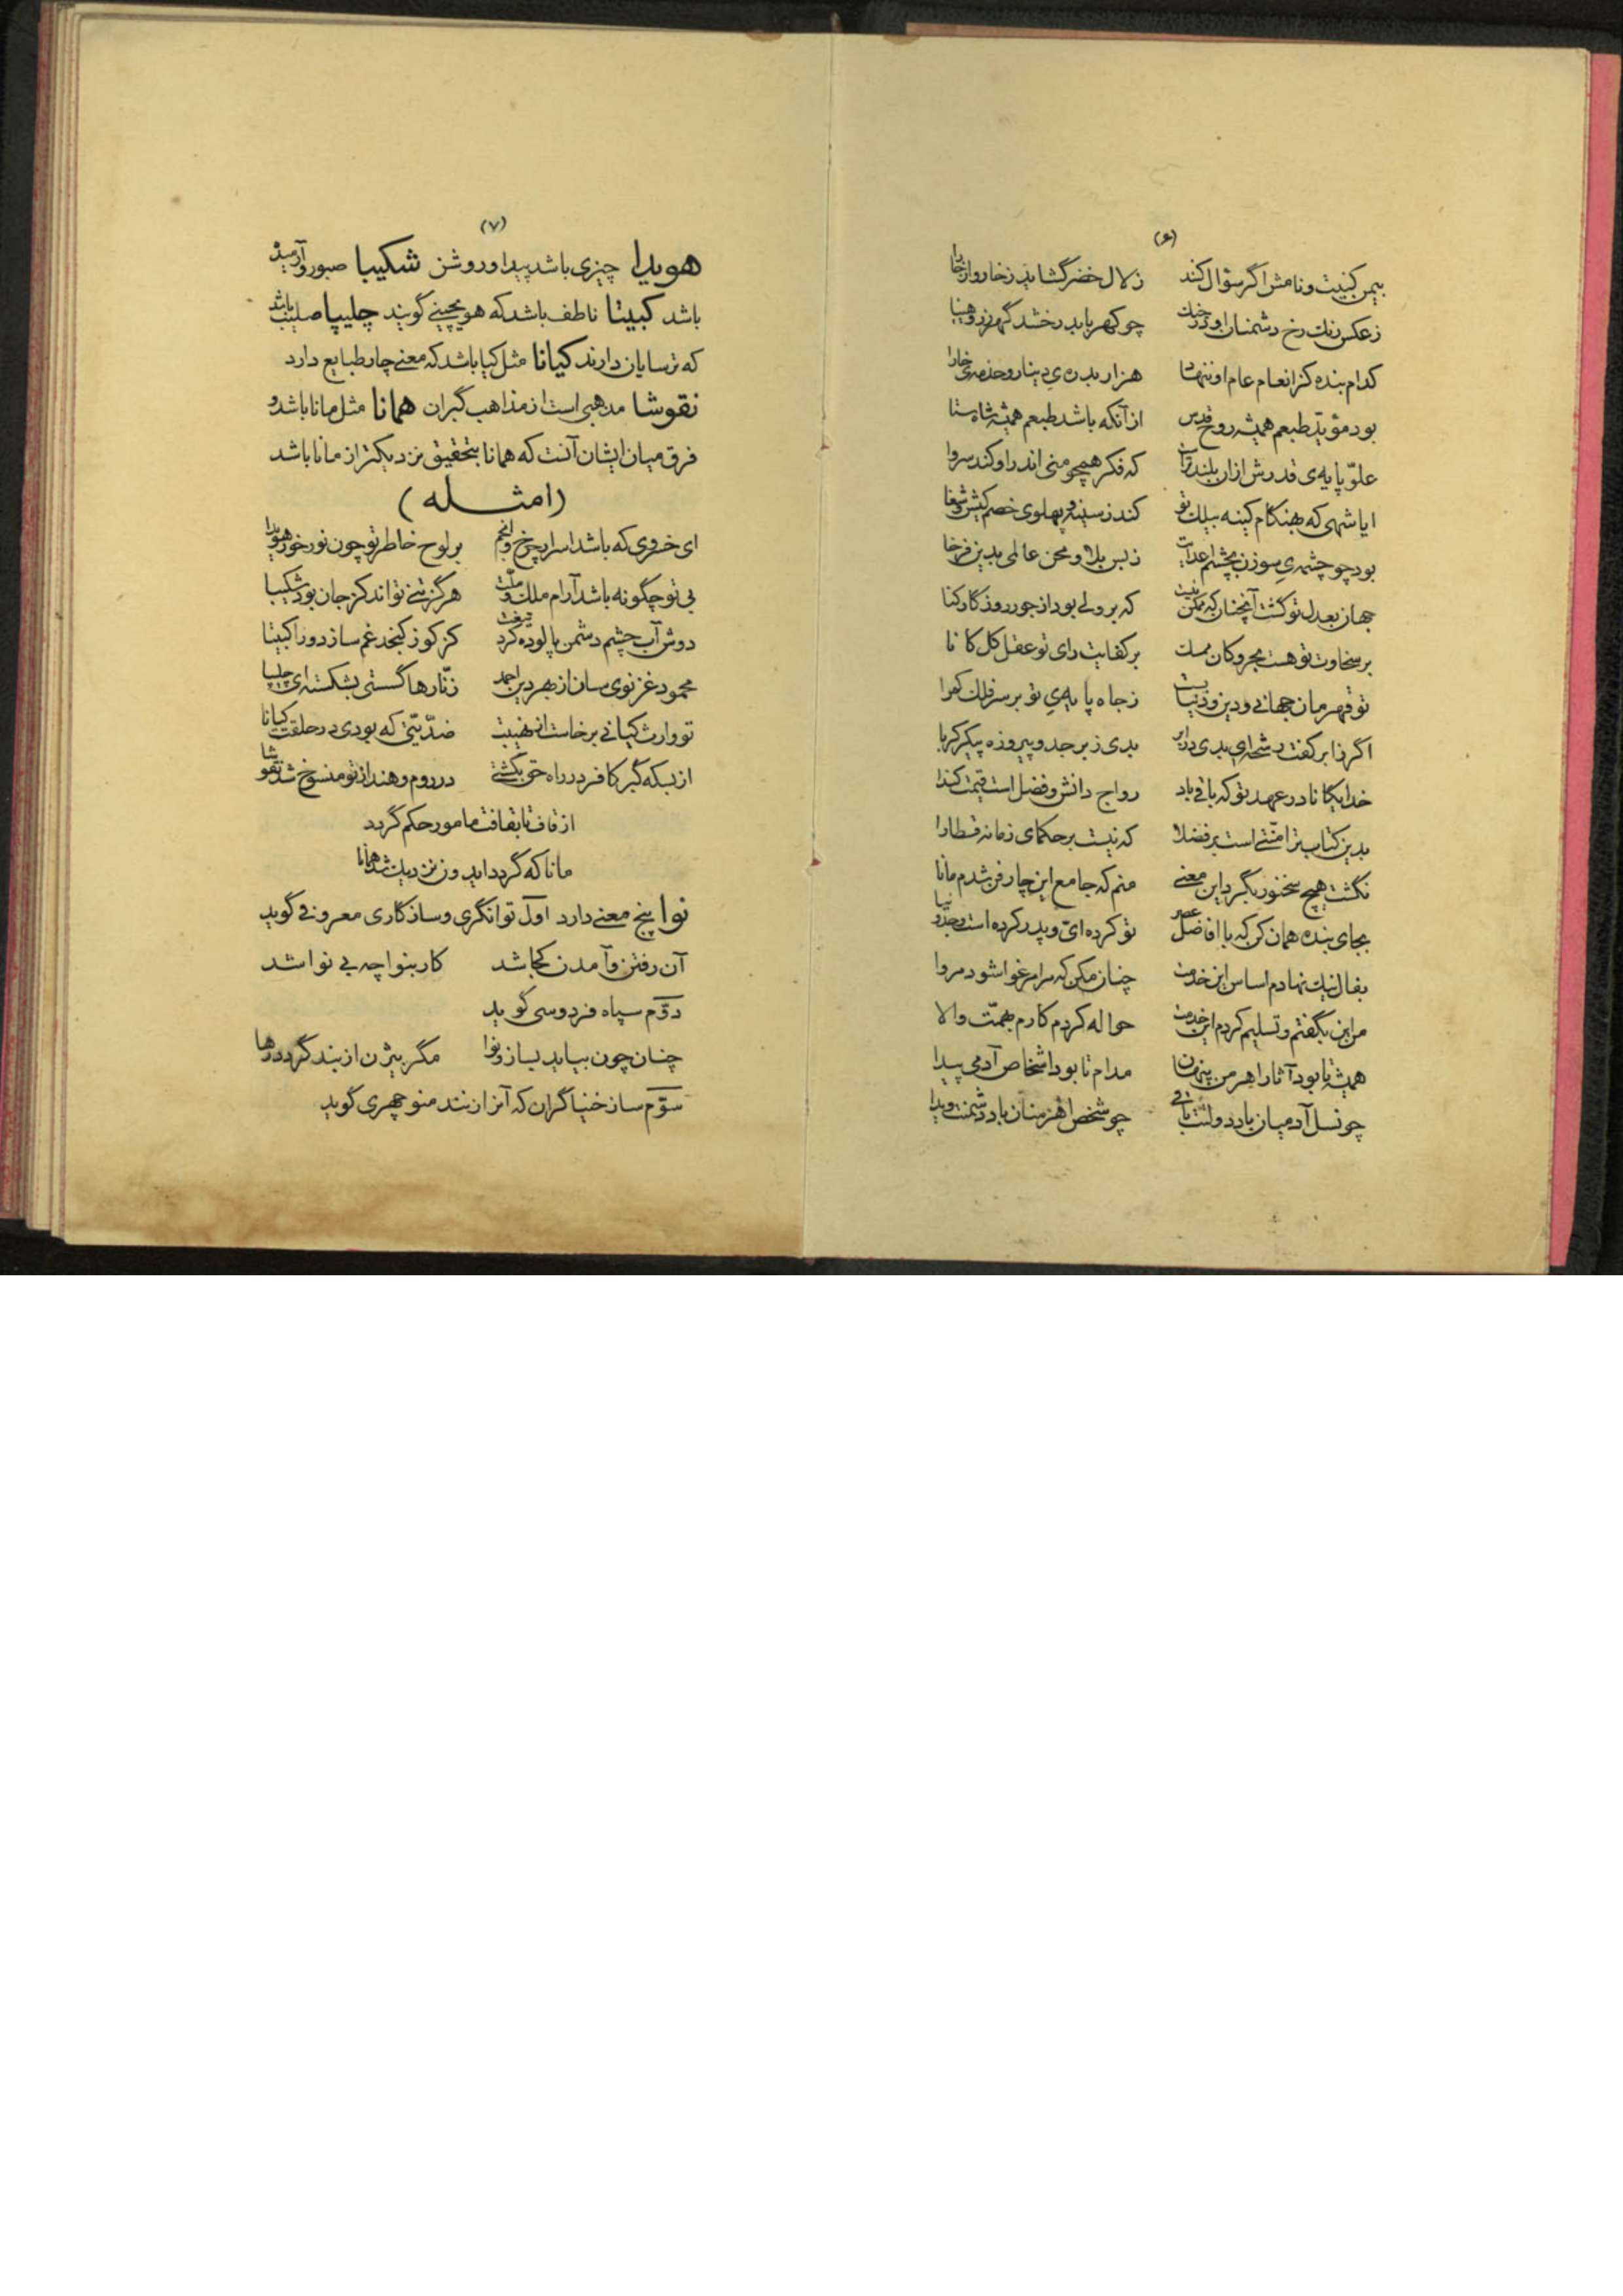 (۶)
بیمن کنیت و نامش اگر سؤال کند زلال خضر گشاید ز خار و از خارا
ز عکس رنگ رخ دشمنان او چو کهربا بدرخشد گهر ز
کدام بنده کز انعام عام او ننهاد هزار بدره‌ی دینار و خارا
بود مؤید طبعم همیشه روح قدس از آنکه باشد طبعم همیشه شاه ستا
علو پایه‌ی قدرش از آن بلندتر است که فکر همچو منی اندر او کند سروا
ایا شهی که بهنگام کینه بیلک تو کند ز سینه و پهلوی خصم کیش و شغا
بود چو چشمه‌ی سوزن بچشم اعدایت ز بس بلا و محن عالمی بدین فرخا
جهان بعدل تو گشت آنچنان که ممکن نیست که بر دلی بود از جور روزگار کنا
بر سخاوت تو هست بحر و کان ممسک بر کفایت رای تو عقل کل کانا
تو قهرمان جهانی و دین و دنیا ز جاه پایه‌ی تو بر سر فلک کمرا
اگر ز ابر کفت رشحه‌ای بدی در ابر بدی زبرجد و پیروزه پیکر کربا
خدایگانا در عهد تو که باقی باد رواج دانش و فضل است قیمت کندا
بدین کتاب ترا منتی است بر فضلا که نیست بر حکمای زمانه قسطارا
نگشت هیچ سخنور بگرد این معنی منم که جامع این چار فن شدم مانا
بجای بنده همان کن که با افاضل عصر تو کرده‌ای و پدر کرده است و جد و نیا
بفال نیک نهادم اساس این خدمت چنان مکن که مرا مرغوا شود مروا
من این بگفتم و تسلیم کردم این خدمت حواله کردم کارم بهمت والا
همیشه تا بود آثار اهرمن پنهان مدام تا بود اشخاص آدمی پیدا
چو نسل آدمیان باد دولتت باقی چو شخص اهرمنان باد دشمنت
(۷)
هویدا چیزی باشد پیدا و روشن شکیبا صبور و آرمیده
باشد کبیتا ناطف باشد که هویجینی گویند چلیپا صلیب باشد
که ترسایان دارند کیانا مثل کیا باشد که معنی چار طبایع دارد
نقوشا مذهبی است از مذاهب گبران همانا مثل مانا باشد و
فرق میان ایشان آنست که همانا بتحقیق نزدیکتر از مانا باشد
(امثــله)
ای خسروی که باشد اسرار چرخ و انجم بر لوح خاطر تو چون نور خور هویدا
بی تو چگونه باشد آرام ملک و ملت هرگز تنی تواند کز جان بود شکیبا
دوش آب چشم دشمن پالوده کرد کز کوز کنجد غم سازد ورا کبیتا
محمود غزنوی سان از بهر دین احمد زنارها گسستی بشکسته‌ای چلیپا
تو وارث کیانی برخاست از نهیبت ضدیتی که بودی در خلقت کیانا
از بسکه گبر کافر در راه حق بکشتی در روم و هند از تو منسوخ شد نقوشا
از قاف تا بقافت مامور حکم گردد
مانا که گردد اید و نزدیک شد همانا
نوا پنج معنی دارد اول توانگری و سازکاری معروفی گوید
آن رفتن و آمدن کجا شد کار بنوا چه بی نوا شد
دوم سپاه فردوسی گوید
چنان چون بباید بساز و نوا مگر بیژن از بند گردد رها
سوم ساز خنیاگران که آنرا زنند منوچهری گوید